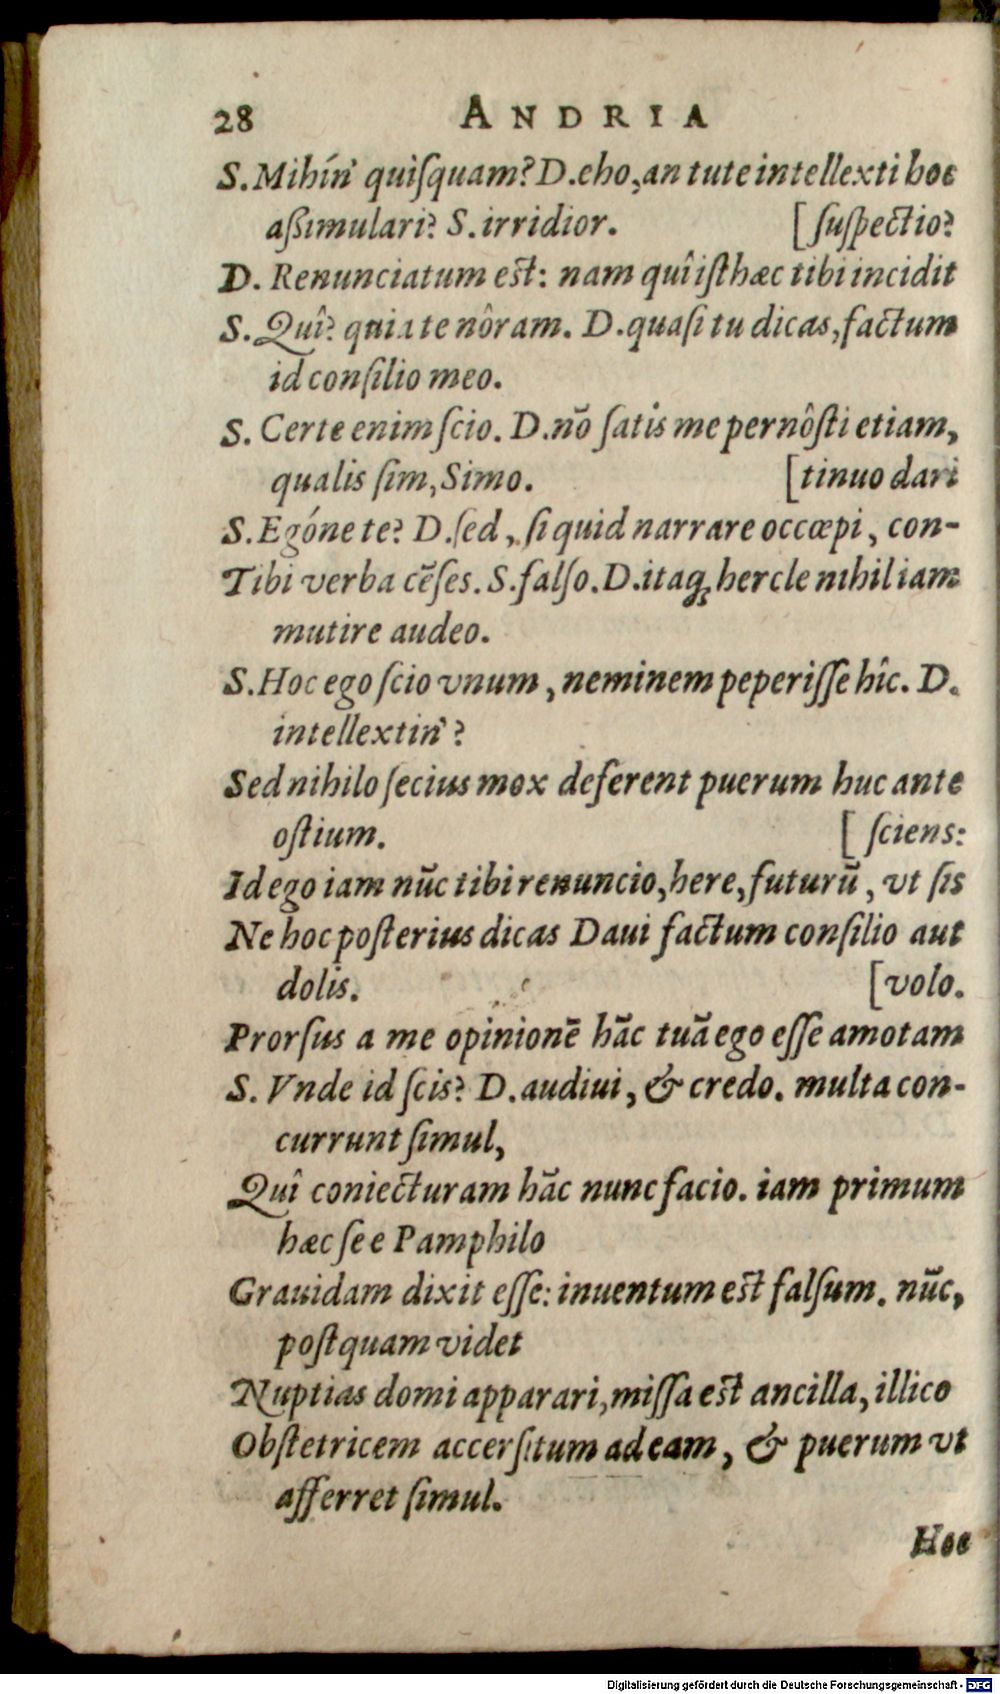 28 ANDRIA
S. Mihín' quiſquam? D. eho, an tute intellexti hoc
aßimulari? S. irridior. [ ſuſpectio?
D. Renunciatum est: nam quî iſthæc tibi incidit
S. Quî? quia te nôram. D. quaſi tu dicas, factum
id conſilio meo.
S. Certe enim ſcio. D. nō ſatis me pernôſti etiam,
qualis ſim, Simo. [ tinuo dari
S. Egóne te? D. ſed, ſi quid narrare occœpi, con-
Tibi verba cēſes. S. falſo. D. itaq; hercle nihil iam
mutire audeo.
S. Hoc ego ſcio vnum, neminem peperiſſe hîc. D.
intellextin'?
Sed nihilo ſecius mox deferent puerum huc ante
oſtium. [ ſciens:
Id ego iam nūc tibi renuncio, here, futurū, vt ſis
Ne hoc poſterius dicas Daui factum conſilio aut
dolis. [ volo.
Prorſus a me opinionē hāc tuā ego eſſe amotam
S. Vnde id ſcis? D. audiui, & credo. multa con-
currunt ſimul,
Quî coniecturam hāc nunc facio. iam primum
hæc ſe e Pamphilo
Grauidam dixit eſſe: inuentum est falſum. nūc,
poſtquam videt
Nuptias domi apparari, miſſa est ancilla, illico
Obſtetricem accerſitum ad eam, & puerum vt
afferret ſimul.
Hoc
Digitalisierung gefördert durch die Deutsche Forschungsgemeinschaft - DFG